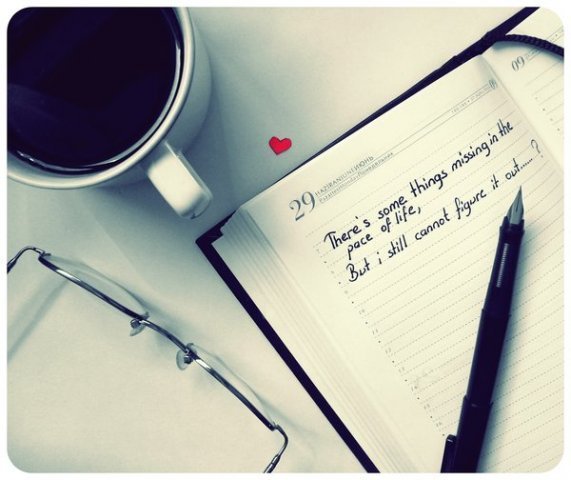 29 HAZİRAN/JUNE/ИЮНЬ
There's some things missing in the
pace of life,
But i still cannot figure it out.....?
09
09